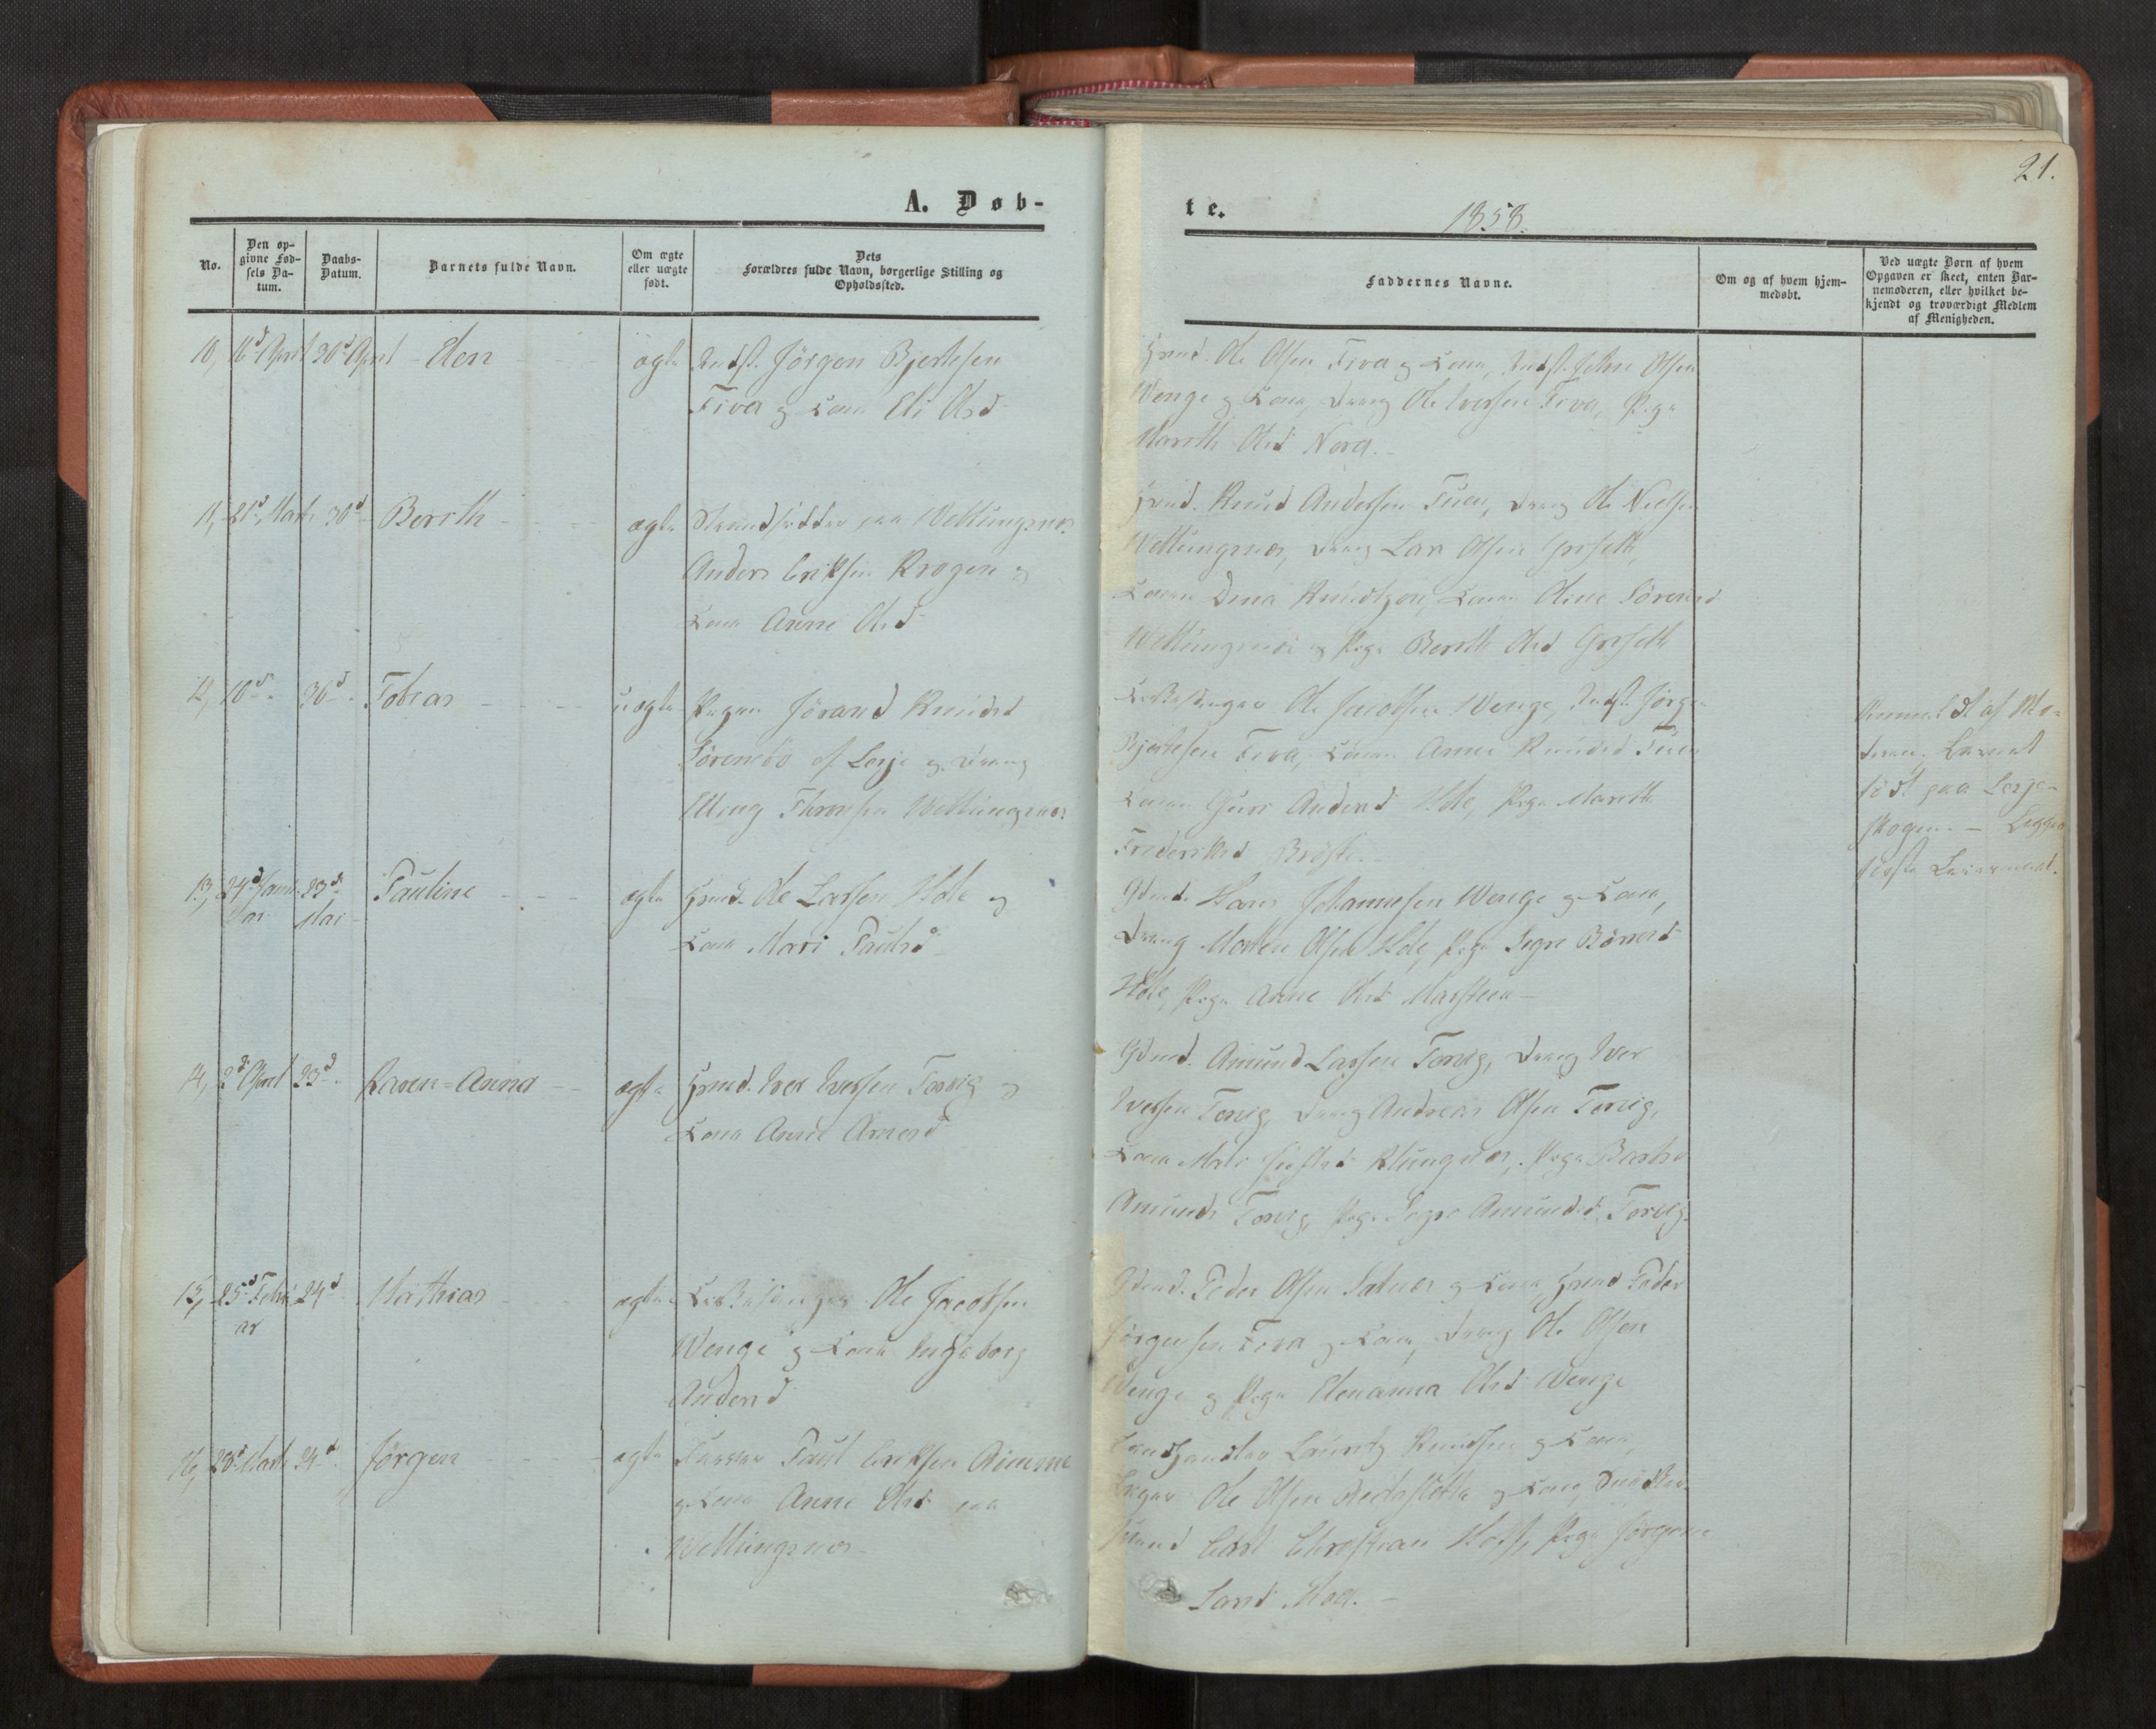 21.
A. Døb-
te.
1858.
No.
Den op-
givne Fød-
sels Da-
tum.
Daabs-
Datum.
Barnets fulde Navn.
Om ægte
eller uægte
født.
Dets
Forældres fulde Navn, borgerlige Stilling og
Opholdssted.
Faddernes Navne.
Om og af hvem hjem-
medøbt.
Ved uægte Børn af hvem
Opgaven er skeet, enten Bar-
nemoderen, eller hvilket be-
kjendt og troværdigt Medlem
af Menigheden.
10, 16d April 30d April Elen ægte Indst. Jörgen Bjertesen
Fiva og Kona Eli Olsd
Grmd. Ole Olsen Fiva og Kona, Indst. John Olsen
Wenge og Kona, Dreng Ole Iversen Fiva, Pige
Mareth Olsd Nora.
11, 21d Marts 30d Berith ægte Strandsidder paa Weblungsnes
Anders Eriksen Krogen og
Kona Anne Olsd
Grmd. Knud Andersen Tuen, Dreng Ole Nielsen
Weblungsnes, Dreng Lars Olsen Grseth,
Konen Dina Knudtzon, Konen Oline Sörensd
Weblungsnes og Pige Berith Olsd Grseth
12, 10d 30d Tobias uægte Pigen Jörand Knudsd
af Lesje og Dreng
Elling Thorsen Weblungsnes
Ole Jacobsen Wenge, Indst. Jörgen
Bjertesen Fiva, Konen Anne Knudsd Tuen
Konen Guri Andersd Hole, Pige Mareth
Frederiksd
Anmeldt af Mo-
deren, Barnet
födt paa Lesje-
skogen. — Begges
förste Leiermaal.
13, 24d Janu- 23d Pauline ægte Grmd. Ole Larsen Hole og
ar Mai
Kona Mari Paulsd
Grmd. Hans Johannesen Wenge og Kona,
Dreng Morten Olsen Hole, Pige Segre
Hole, Pige Anne Olsd Marstein
14, 2d April 23d Karen=Anna ægte Grmd. Iver Iversen Torvig og
Kona Anne Arnesd
Grmd. Amund Larsen Torvig, Dreng Iver
Iversen Torvig, Dreng Andreas Olsen Torvig,
Kona Mali Klungnes, Pige Barbro
Amunds Torvig, Pige Segre Amundsd. Torvig.
15, 25d Febru- 24d Mathias ægte Ole Jacobsen
ar
Wenge og Kona Ingeborg
Andersd
Grmd. Peder Olsen Sætnes og Kona, Grmd Peder
Jörgensen Fiva og Kona, Dreng Ole Olsen
Wenge og Pige Elenanna Olsd Wenge
16, 20d Marts 24d Jörgen ægte Garver Paul Eriksen
og Kona Anne Olsd paa
Weblungsnes
Landhandler Lauritz Knudsen og Kona,
Ole Olsen og Kona,
Carl Christian Holst, Pige Jörgine
Larsd Moe.